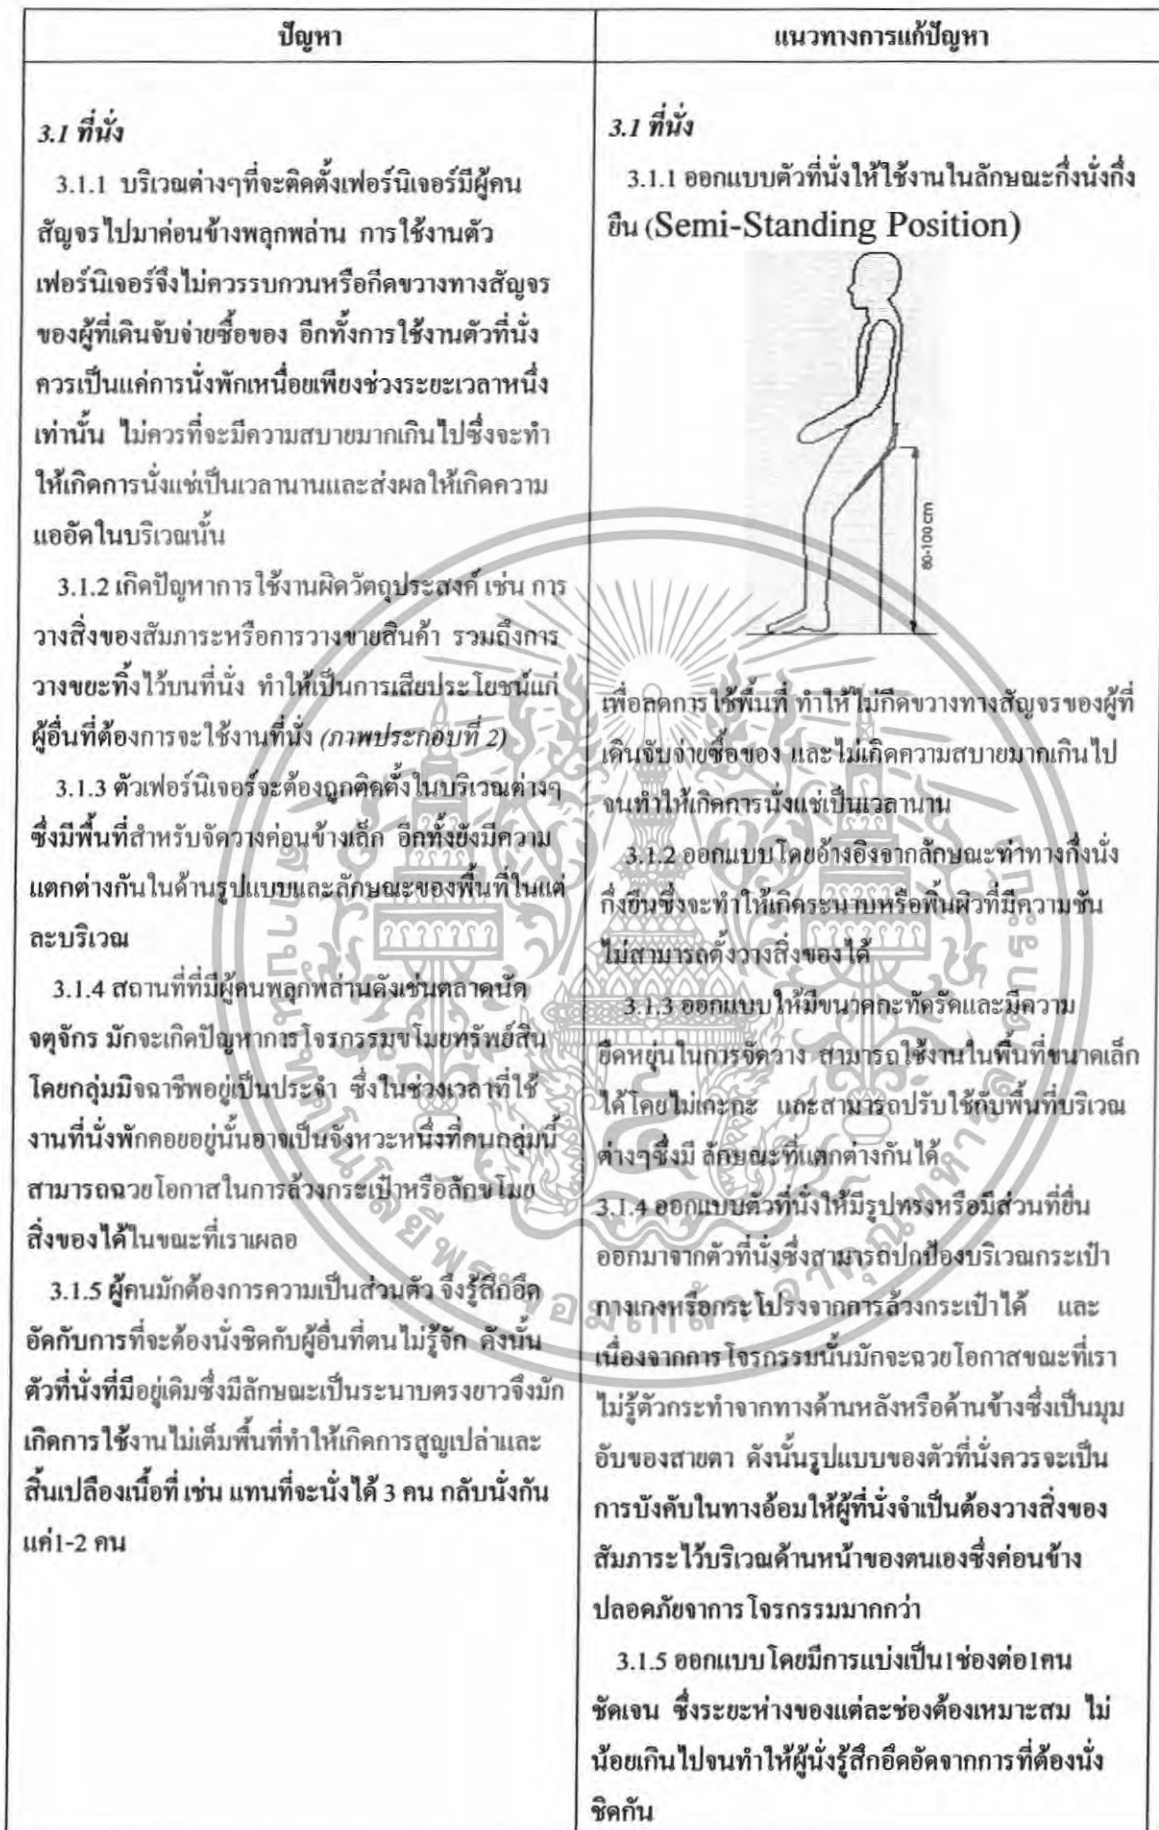 ปัญหา
3.1 ที่นั่ง
3.1.1 บริเวณต่างๆที่จะติดตั้งเฟอร์นิเจอร์มีผู้คน
สัญจรไปมาค่อนข้างพลุกพล่าน การใช้งานตัว
เฟอร์นิเจอร์จึงไม่ควรรบกวนหรือกีดขวางทางสัญจร
ของผู้ที่เดินจับจ่ายซื้อของ อีกทั้งการใช้งานตัวที่นั่ง
ควรเป็นแค่การนั่งพักเหนื่อยเพียงช่วงระยะเวลาหนึ่ง
เท่านั้น ไม่ควรที่จะมีความสบายมากเกินไปซึ่งจะทำ
ให้เกิดการนั่งแช่เป็นเวลานานและส่งผลให้เกิดความ
แออัดในบริเวณนั้น
3.1.2 เกิดปัญหาการใช้งานผิดวัตถุประสงค์ เช่น การ
วางสิ่งของสัมภาระหรือการวางขายสินค้า รวมถึงการ
วางขยะทิ้งไว้บนที่นั่ง ทำให้เป็นการเสียประโยชน์แก่
ผู้อื่นที่ต้องการจะใช้งานที่นั่ง (ภาพประกอบที่ 2)
3.1.3 ตัวเฟอร์นิเจอร์จะต้องถูกติดตั้งในบริเวณต่างๆ
ซึ่งมีพื้นที่สำหรับจัดวางค่อนข้างเล็ก อีกทั้งยังมีความ
แตกต่างกันในด้านรูปแบบและลักษณะของพื้นที่ในแต่
ละบริเวณ
3.1.4 สถานที่ที่มีผู้คนพลุกพล่านดังเช่นตลาดนัด
จตุจักร มักจะเกิดปัญหาการโจรกรรมขโมยทรัพย์สิน
โดยกลุ่มมิจฉาชีพอยู่เป็นประจำ ซึ่งในช่วงเวลาที่ใช้
งานที่นั่งพักคอยอยู่นั้นอาจเป็นจังหวะหนึ่งที่คนกลุ่มนี้
สามารถฉวยโอกาสในการล้วงกระเป๋าหรือลักขโมย
สิ่งของได้ในขณะที่เราเผลอ
3.1.5 ผู้คนมักต้องการความเป็นส่วนตัว จึงรู้สึกอึด
อัดกับการที่จะต้องนั่งชิดกับผู้อื่นที่ตนไม่รู้จัก ดังนั้น
ตัวที่นั่งที่มีอยู่เดิมซึ่งมีลักษณะเป็นระนาบตรงยาวจึงมัก
เกิดการใช้งานไม่เต็มพื้นที่ทำให้เกิดการสูญเปล่าและ
สิ้นเปลืองเนื้อที่ เช่น แทนที่จะนั่งได้ 3 คน กลับนั่งกัน
แค่1-2 คน
แนวทางการแก้ปัญหา
3.1 ที่นั่ง
3.1.1 ออกแบบตัวที่นั่งให้ใช้งานในลักษณะกึ่งนั่งกึ่ง
ยืน (Semi-Standing Position)
80-100 cm
เพื่อลดการใช้พื้นที่ ทำให้ไม่กีดขวางทางสัญจรของผู้ที่
เดินจับจ่ายซื้อของ และไม่เกิดความสบายมากเกินไป
จนทำให้เกิดการนั่งแช่เป็นเวลานาน
3.1.2 ออกแบบโดยอ้างอิงจากลักษณะท่าทางกึ่งนั่ง
กึ่งยืนซึ่งจะทำให้เกิดระนาบหรือพื้นผิวที่มีความชัน
ไม่สามารถตั้งวางสิ่งของได้
3.1.3 ออกแบบให้มีขนาดกะทัดรัดและมีความ
ยืดหยุ่นในการจัดวาง สามารถใช้งานในพื้นที่ขนาดเล็ก
ได้โดยไม่เกะกะ และสามารถปรับใช้กับพื้นที่บริเวณ
ต่างๆซึ่งมี ลักษณะที่แตกต่างกันได้
3.1.4 ออกแบบตัวที่นั่งให้มีรูปทรงหรือมีส่วนที่ยื่น
ออกมาจากตัวที่นั่งซึ่งสามารถปกป้องบริเวณกระเป๋า
กางเกงหรือกระโปรงจากการล้วงกระเป๋าได้ และ
เนื่องจากการโจรกรรมนั้นมักจะฉวยโอกาสขณะที่เรา
ไม่รู้ตัวกระทำจากทางด้านหลังหรือด้านข้างซึ่งเป็นมุม
อับของสายตา ดังนั้นรูปแบบของตัวที่นั่งควรจะเป็น
การบังคับในทางอ้อมให้ผู้ที่นั่งจำเป็นต้องวางสิ่งของ
สัมภาระไว้บริเวณด้านหน้าของตนเองซึ่งค่อนข้าง
ปลอดภัยจาการโจรกรรมมากกว่า
3.1.5 ออกแบบโดยมีการแบ่งเป็น1ช่องต่อ1คน
ชัดเจน ซึ่งระยะห่างของแต่ละช่องต้องเหมาะสม ไม่
น้อยเกินไปจนทำให้ผู้นั่งรู้สึกอึดอัดจากการที่ต้องนั่ง
ชิดกัน
สถาบันเทคโนโลยีพระจอมเกล้าเจ้าคุณทหารลาดกระบัง